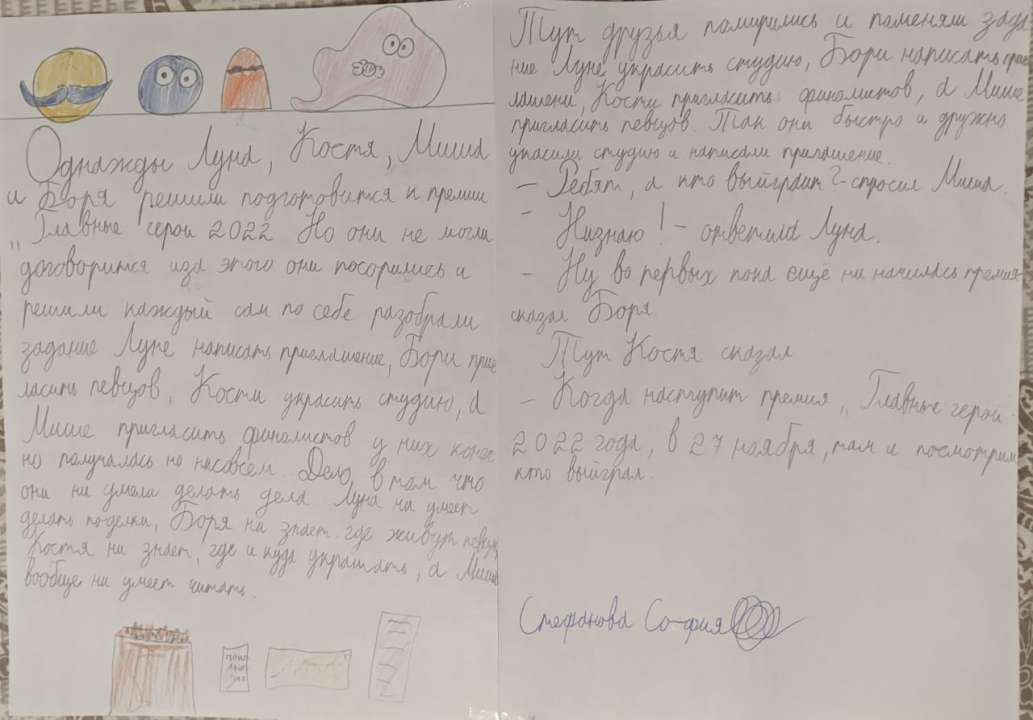 Однажды Луна, Костя, Миша
и Боря решили подготовится к премии
„Главные герои 2022 Но они не могли
договорится изза этого они посорились и
решили каждый сам по себе разобрали
задание Луне написать приглашение, Бори приг
ласить певцов, Кости украсить студию, а
Мише пригласить финалистов у них конеч
но получалась но несовсем. Дело, в том что
они ни умела делать дела Луна на умеет
делать поделки, Боря ни знает где живут певцы
Костя ни знает, где и куда украшать, а Миша
вообще ни умеет читать.
Тут друзья помирились и поменяли зада
ние Луне украсить студию, Бори написать приг
лашени, Кости пригласить финалистов, а Мише
пригласить певцов. Так они быстро и дружно
укасили студию и написали приглашение.
— Ребят, а кто выйграит? - спросил Миша.
— Низнаю! - ответила Луна.
— Ну во первых пока ещё ни началась премия
сказал Боря
Тут Костя сказал
— Когда наступит премия „Главные герои
2022 года, в 27 ноября, там и посмотрим
кто выйграл.
Стефанова София